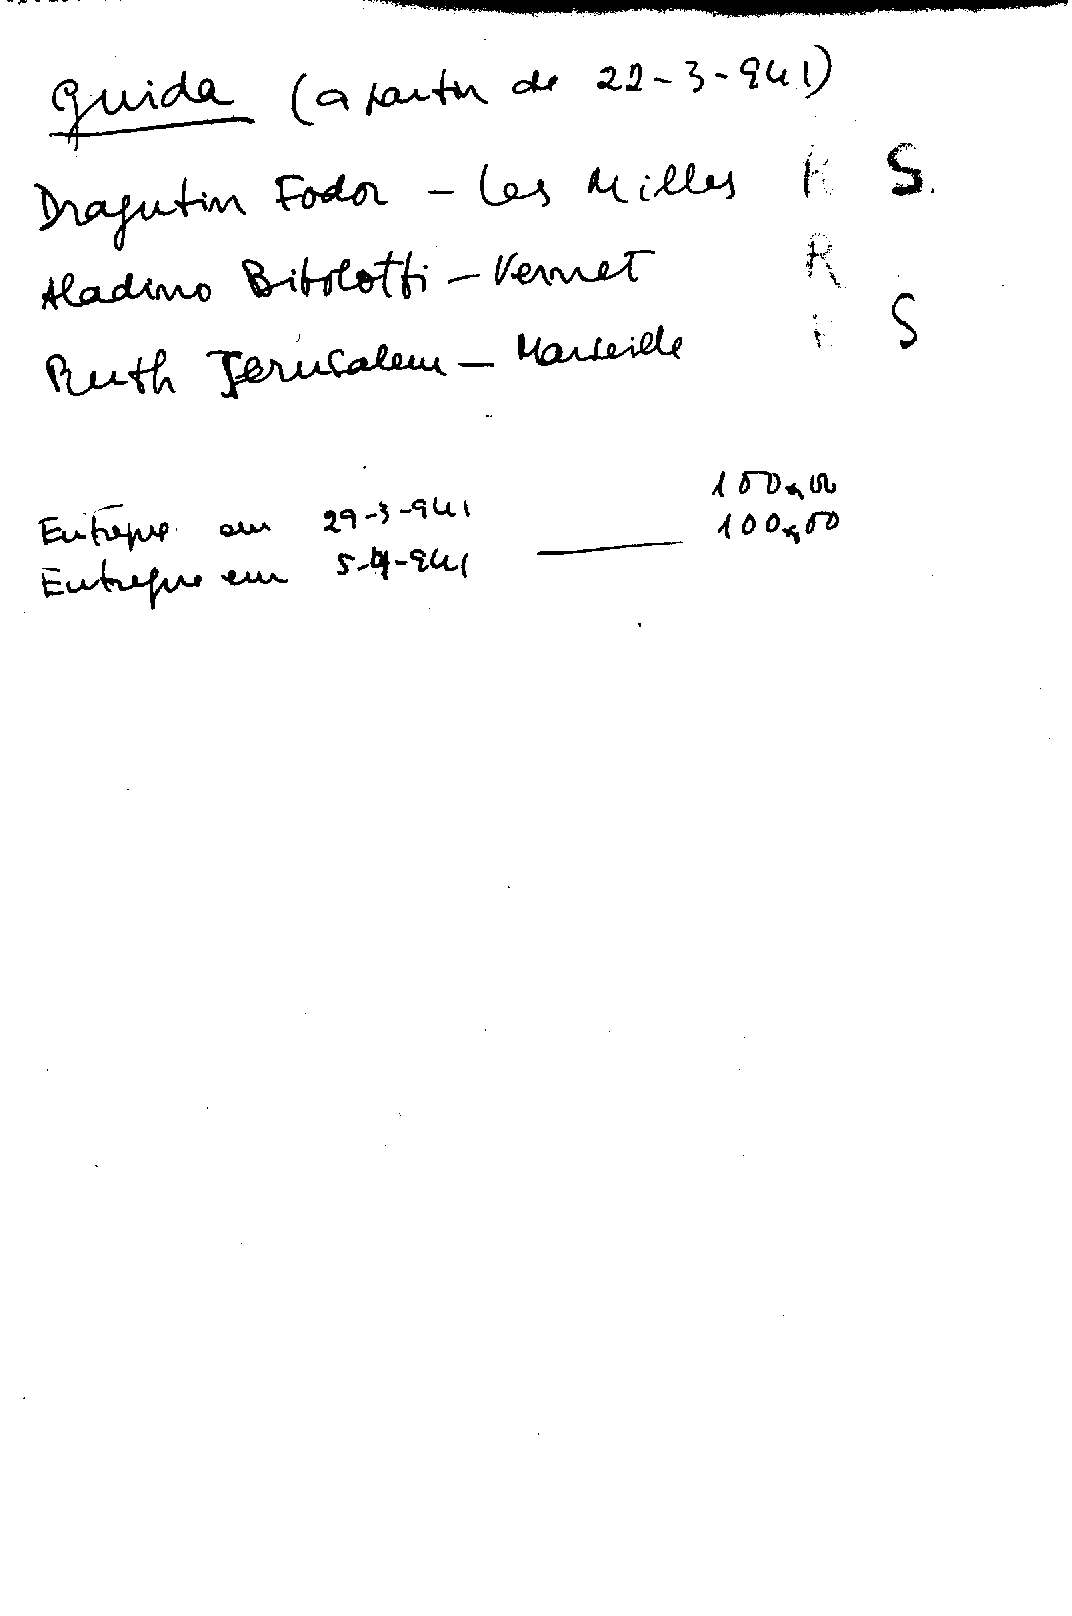 Guida (a partir de 22-3-941)
Dragutin Fodor - Les Milles R S.
Aladino Bibolotti - Vernet R
Ruth Jerusalem - Marseille S
Entregue em 29-3-941 100,00
Entregue em 5-4-941 — 100,00